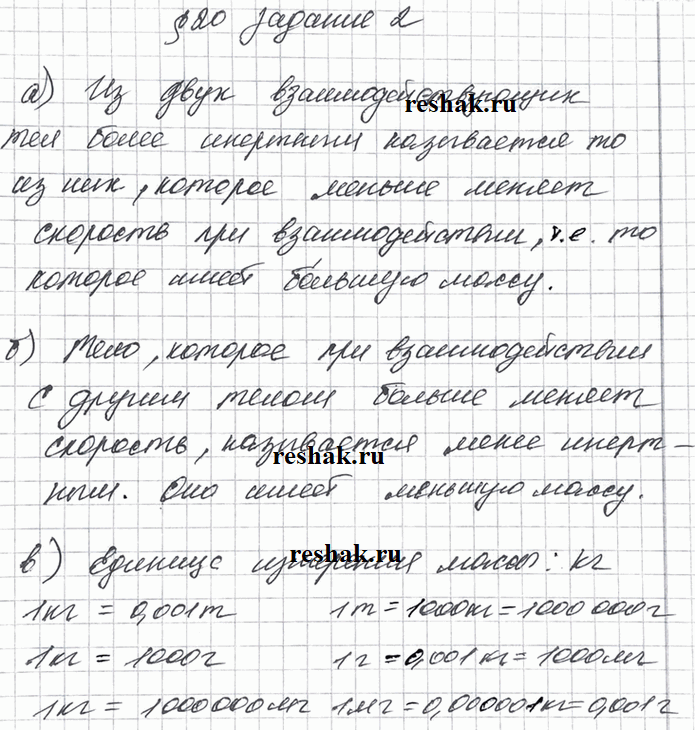 §20 Задание 2
а) Из двух взаимодействующих
тел более инертным называется то
из них, которое меньше меняет
скорость при взаимодействии, т.е. то
которое имеет бо́льшую массу.
б) Тело, которое при взаимодействии
с другим телом больше меняет
скорость, называется менее инерт-
ным. Оно имеет меньшую массу.
в) Единица измерения массы: кг
1кг = 0,001т 1т = 1000кг = 1000 000г
1кг = 1000г 1г = 0,001кг = 1000мг
1кг = 1000000мг 1мг = 0,000001кг = 0,001г
reshak.ru
reshak.ru
reshak.ru